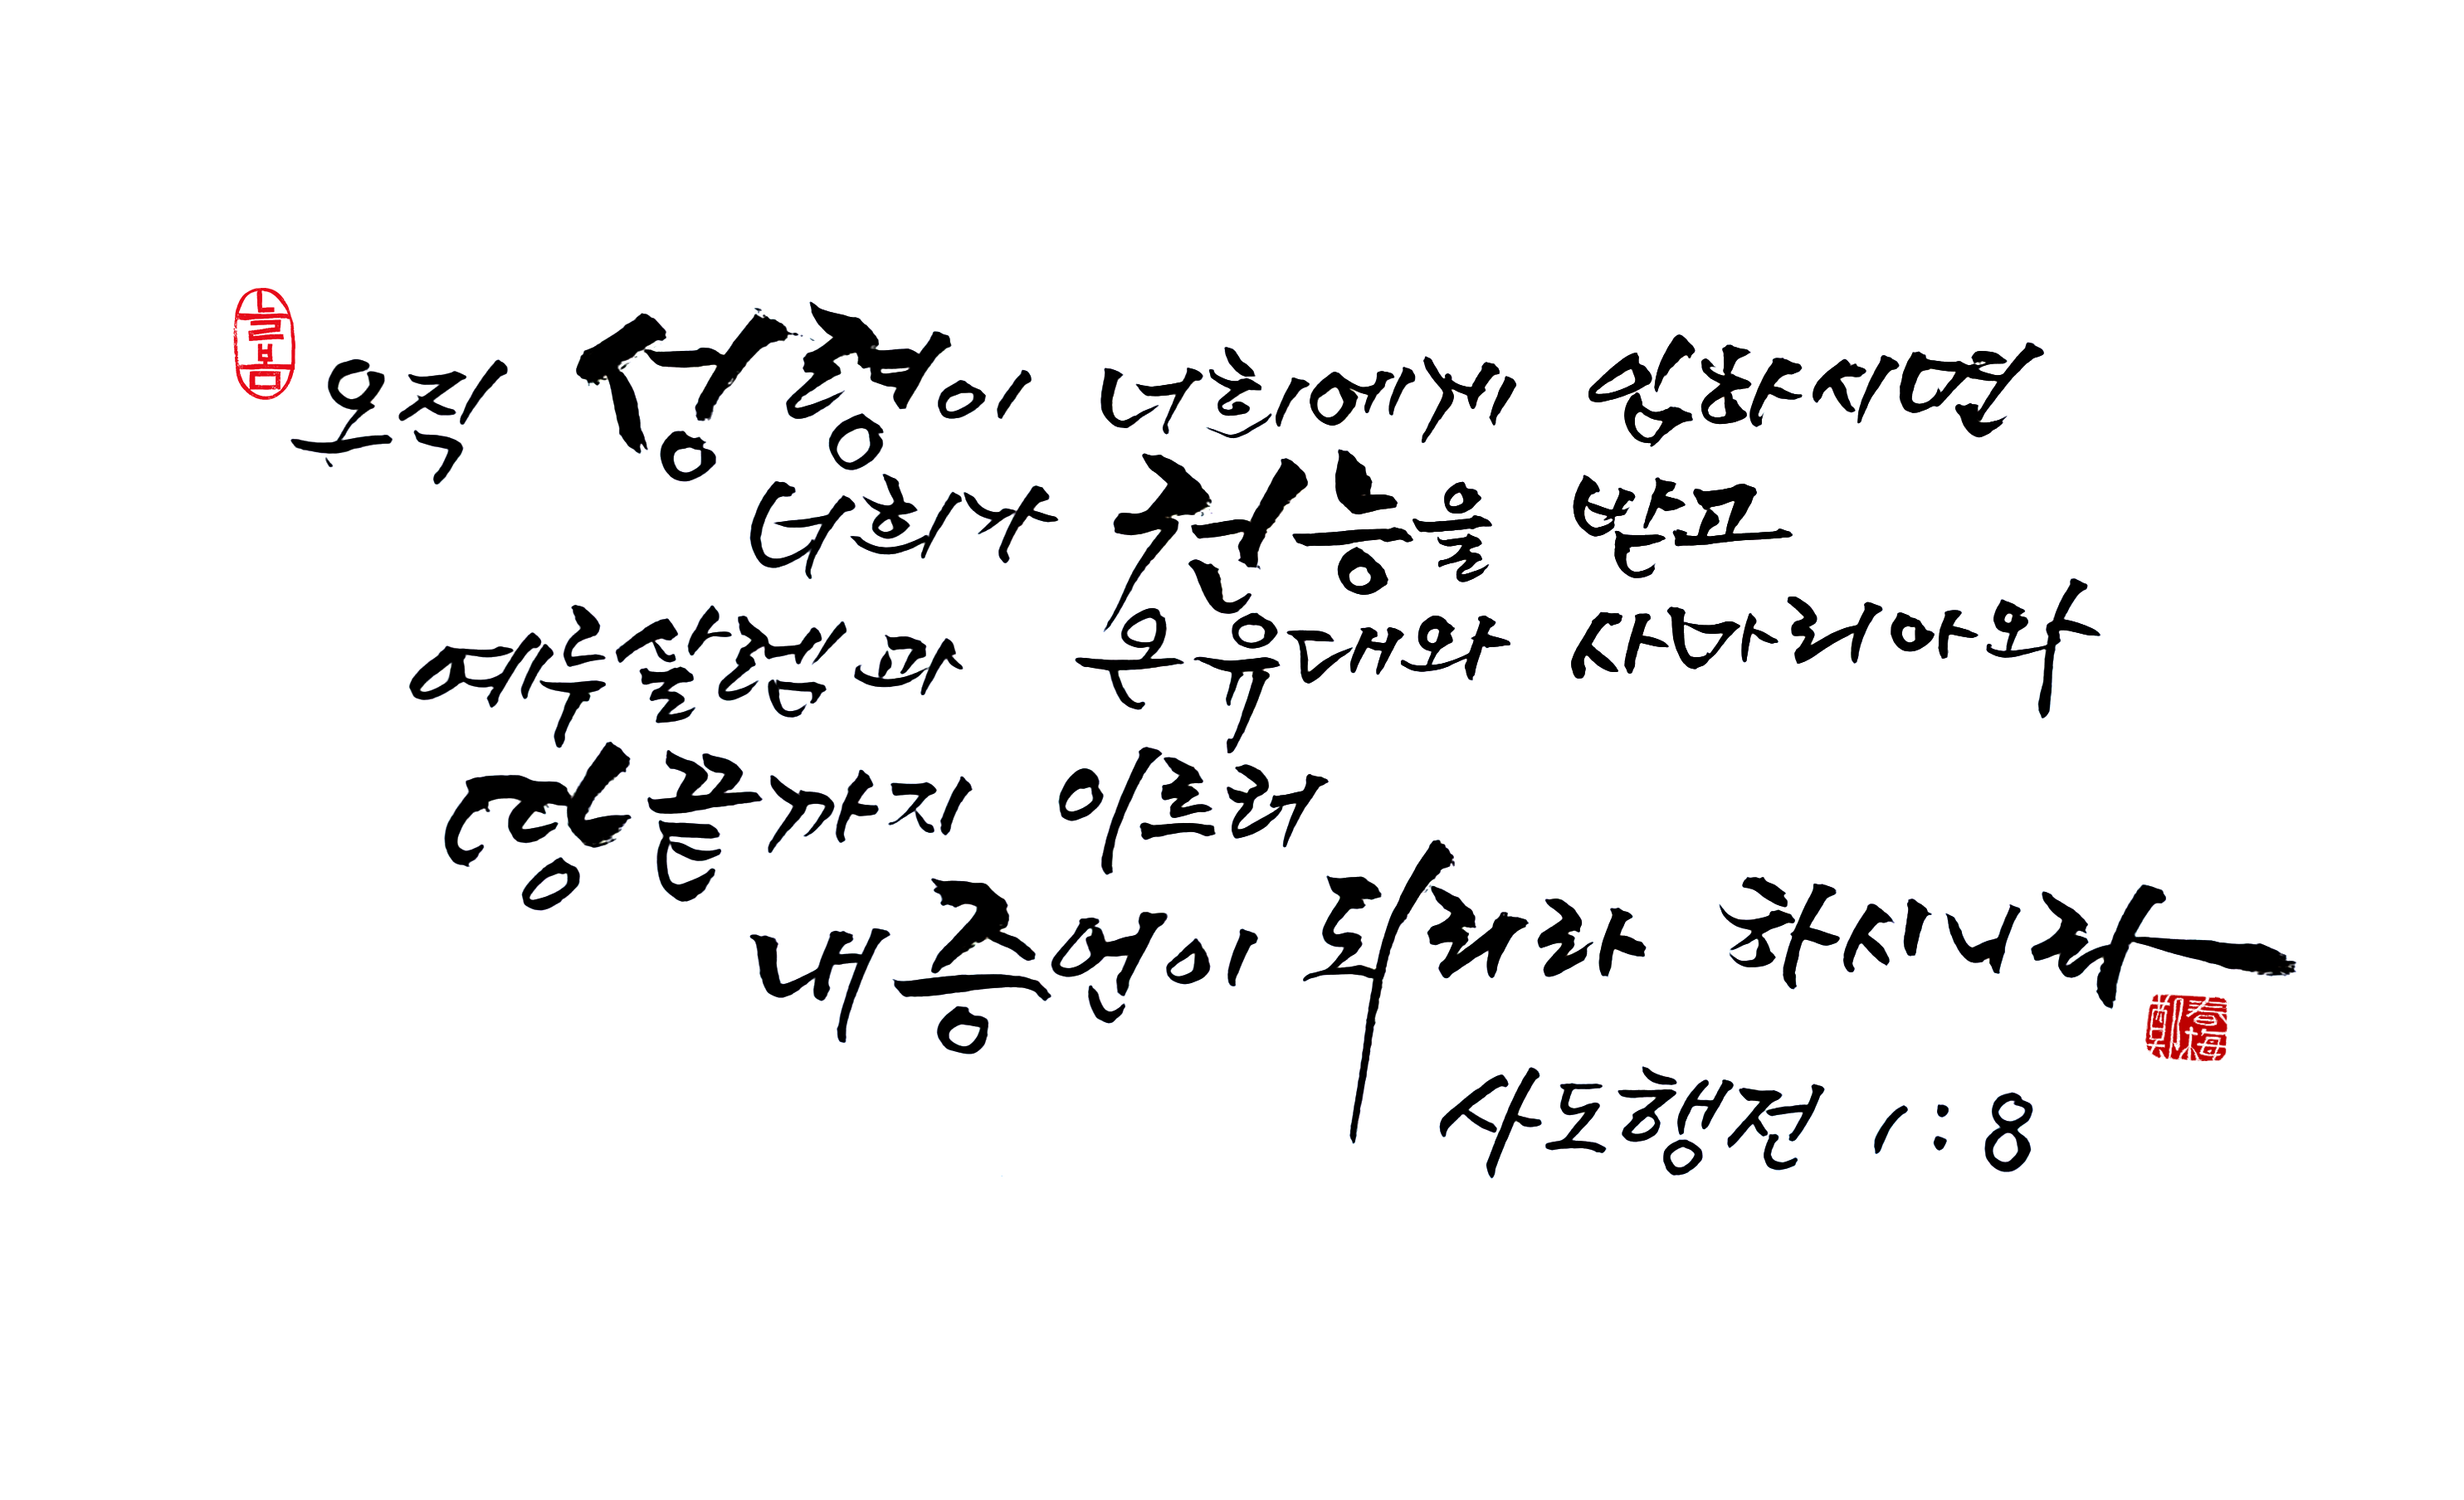 늘봄
오직 성령이 너희에게 임하시면
너희가 권능을 받고
예루살렘과 온 유대와 사마리아와
땅 끝까지 이르러
내 증인이 되리라 하시니라
사도행전 1:8